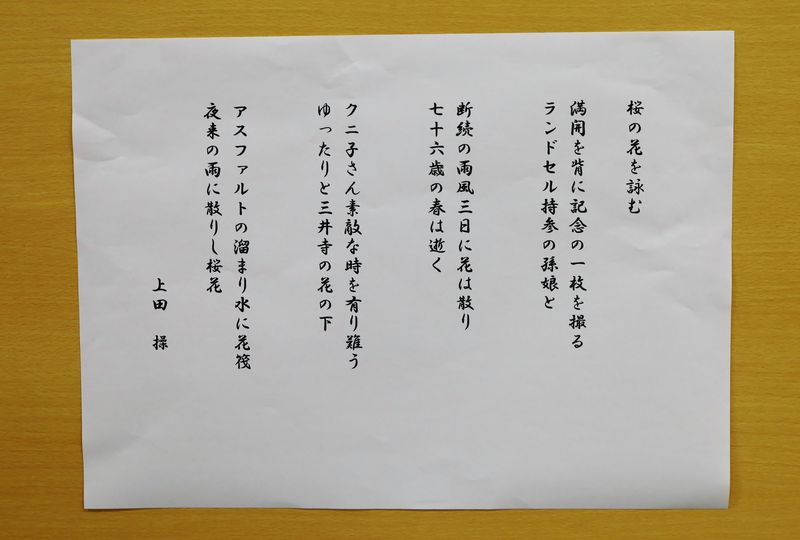 桜の花を詠む
満開を背に記念の一枚を撮る
ランドセル持参の孫娘と
断続の雨風三日に花は散り
七十六歳の春は逝く
クニ子さん素敵な時を有り難う
ゆったりと三井寺の花の下
アスファルトの溜まり水に花筏
夜来の雨に散りし桜花
上田 操